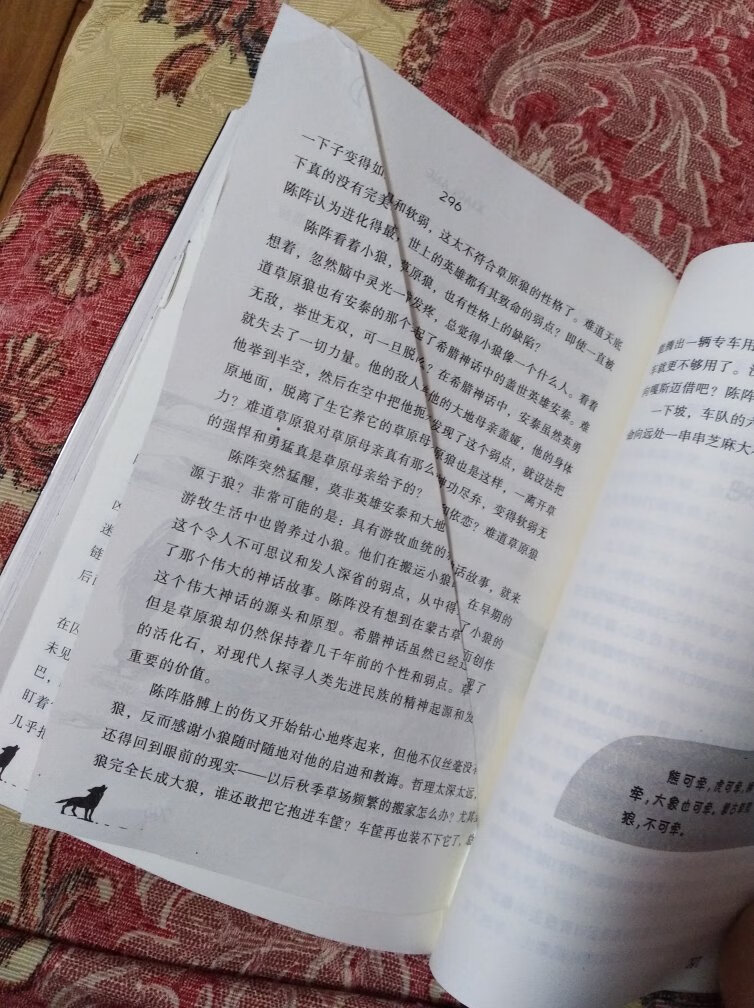 296
一下子变得如 和软弱，这太不符合草原狼的性格了。难道天底
下真的没有完美 世上的英雄都有其致命的弱点？即使一直被
陈阵认为进化得最 原狼，也有性格上的缺陷？
陈阵看着小狼， 阵发疼，总觉得小狼像一个什么人。看着
想着，忽然脑中灵光一 起了希腊神话中的盖世英雄安泰。难
道草原狼也有安泰的那个 ？在希腊神话中，安泰虽然英勇
无敌，举世无双，可一旦脱 他的大地母亲盖娅，他的身体
就失去了一切力量。他的敌人 发现了这个弱点，就设法把
他举到半空，然后在空中把他扼 狼也是这样，一离开草
原地面，脱离了生它养它的草原母 神功尽弃，变得软弱无
力？难道草原狼对草原母亲真有那么 依恋？难道草原狼
的强悍和勇猛真是草原母亲给予的？
陈阵突然猛醒，莫非英雄安泰和大地 话故事，就来
源于狼？非常可能的是：具有游牧血统的 在早期的
游牧生活中也曾养过小狼。他们在搬运小狼 了小狼的
这个令人不可思议和发人深省的弱点，从中得 而创作
了那个伟大的神话故事。陈阵没有想到在蒙古草 现了
这个伟大神话的源头和原型。希腊神话虽然已经
但是草原狼却仍然保持着几千年前的个性和弱点。
的活化石，对现代人探寻人类先进民族的精神起源和发
重要的价值。
陈阵胳膊上的伤又开始钻心地疼起来，但他不仅丝毫没
狼，反而感谢小狼随时随地对他的启迪和教诲。哲理太深太远，
还得回到眼前的现实——以后秋季草场频繁的搬家怎么办？尤其
狼完全长成大狼，谁还敢把它抱进车筐？车筐再也装不下它了，
迷
链
后
在
未见
巴，
盯着
几乎
腾出一辆专车用
车就更不够用了。
嘎斯迈借吧？陈阵
一下坡，车队的六
向远处一串串芝麻大
熊可牵，虎可牵，
牵，大象也可牵。蒙古草原
狼，不可牵。